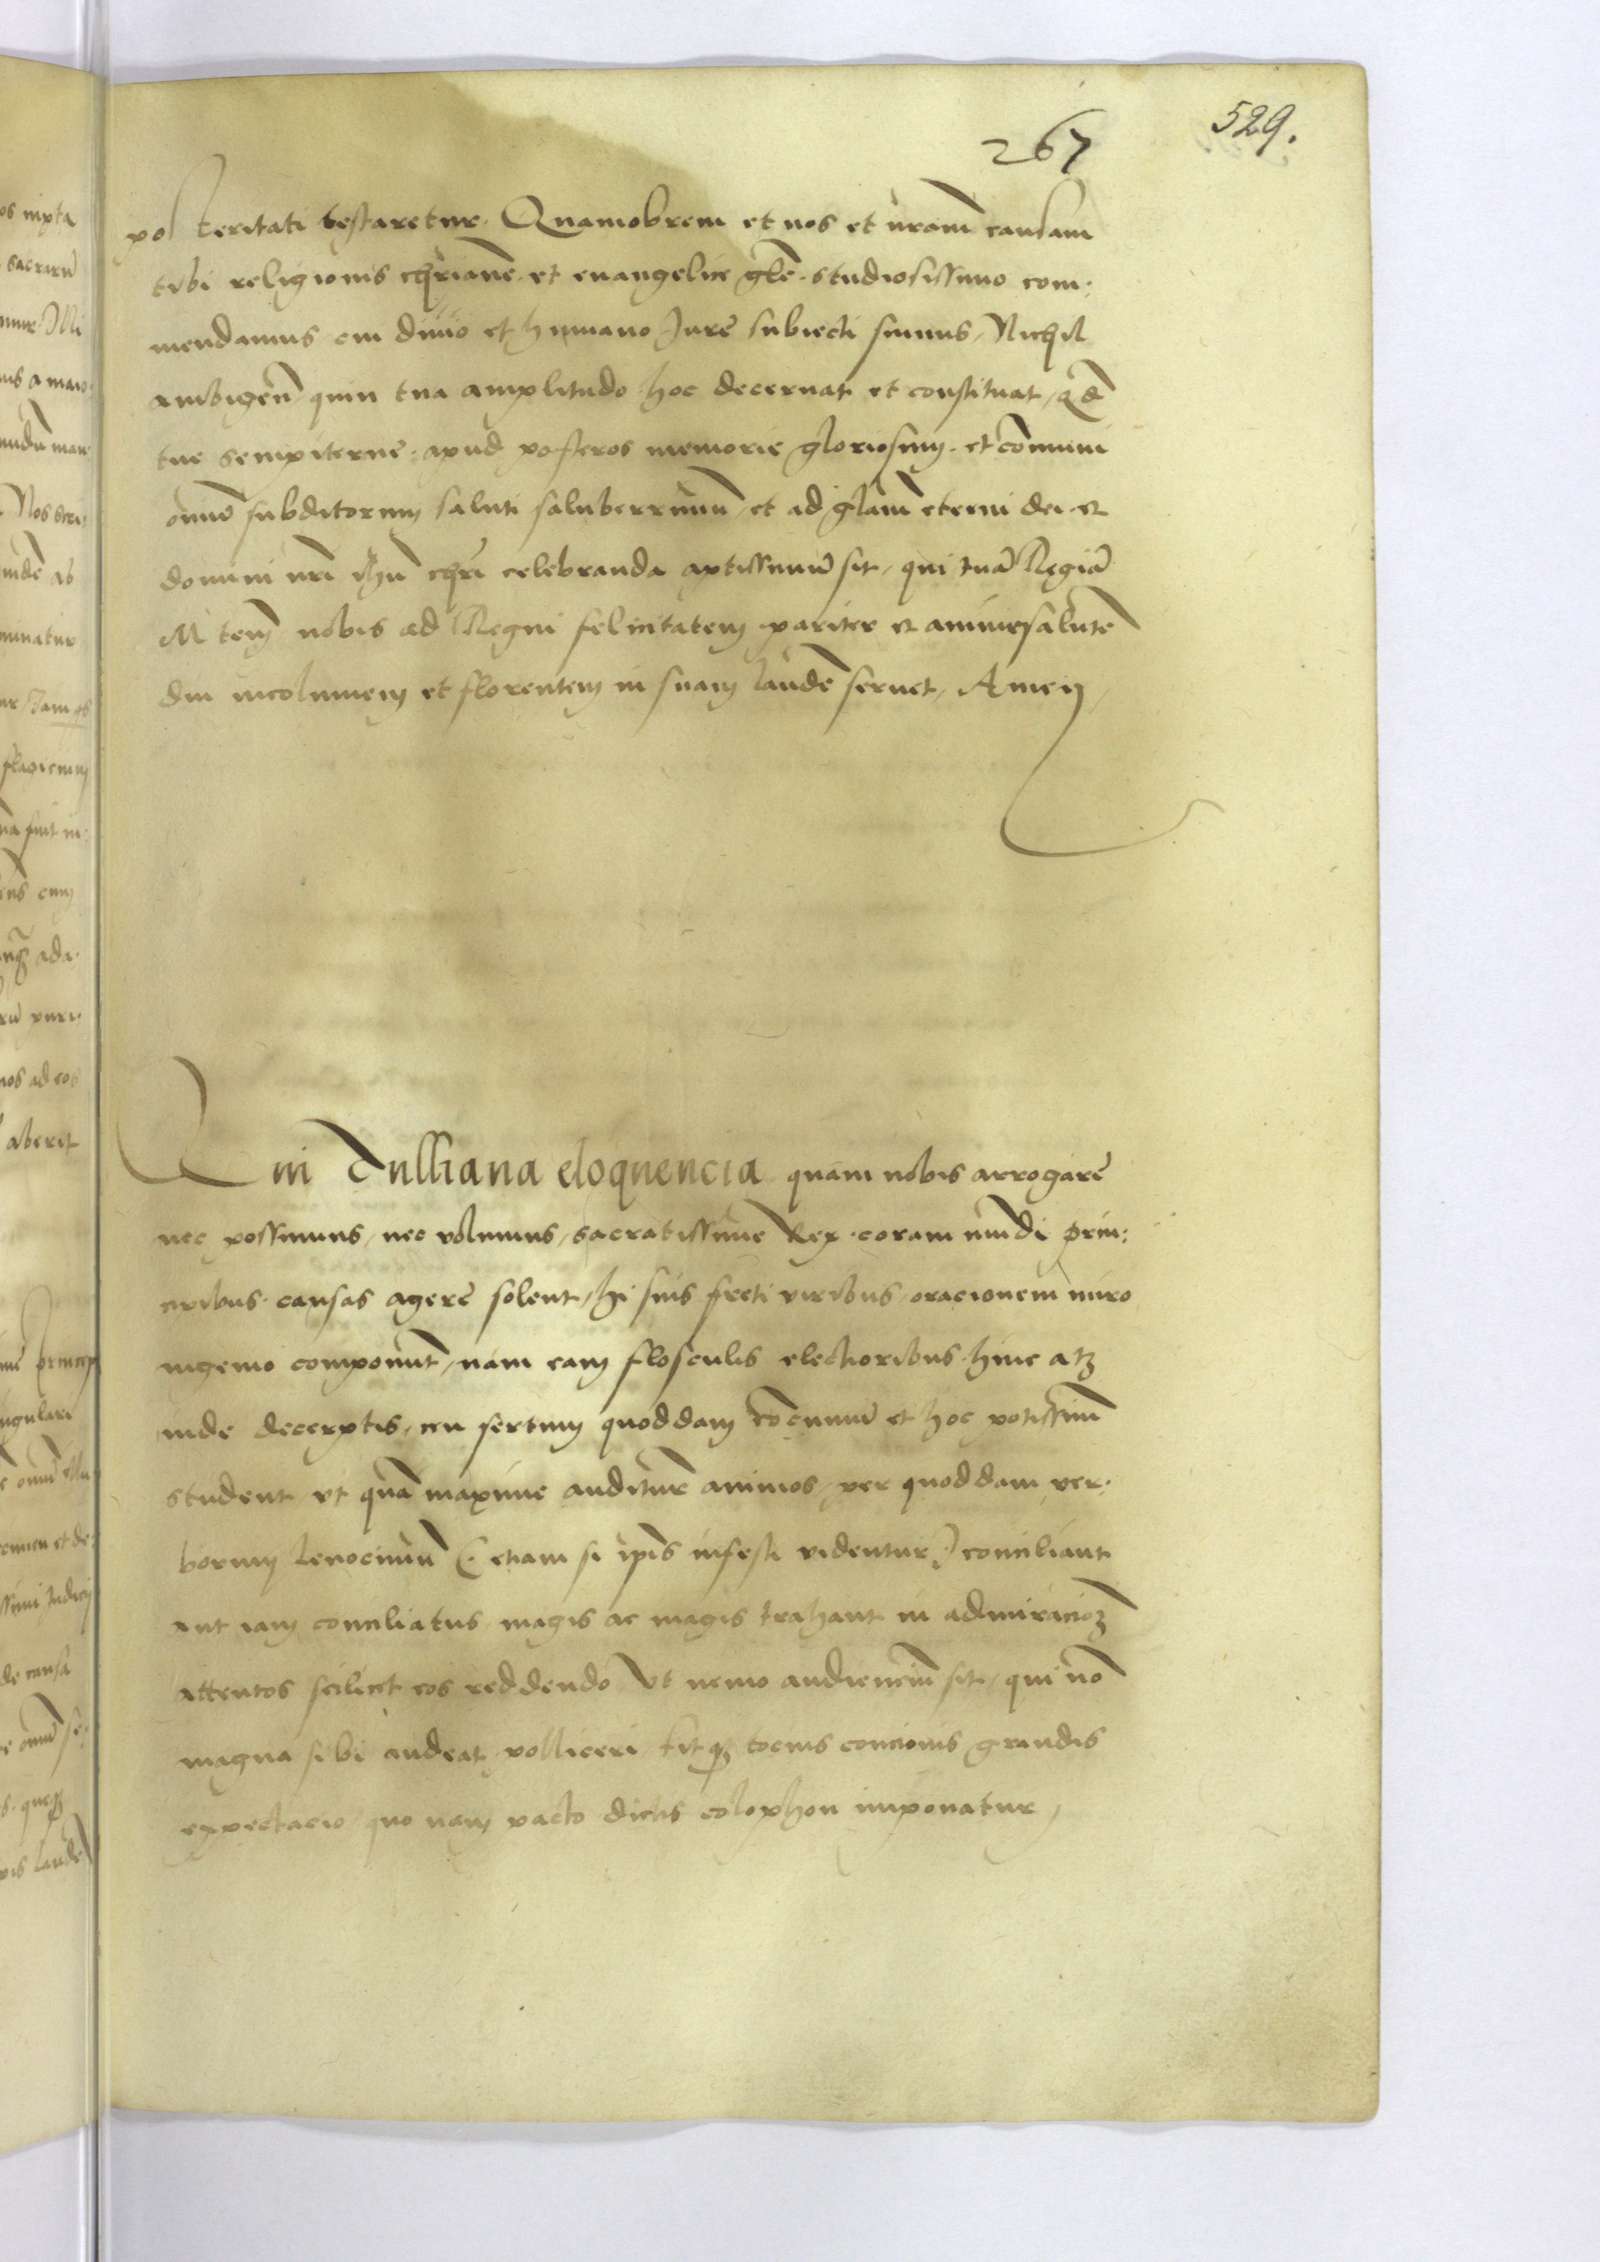 267
529.
posteritati testaretur. Quamobrem et nos et nr̄am causam
tibi religionis chr̄iane et euangelice gl̄e studiosissimo com:
mendamus cui diuīo et humano Jure subiecti sumus, Nichil
ambigen̄ quin tua amplitudo hoc decernat et constituat, qd̄
tue sempiterne apud posteros memorie gloriosum et com̄uni
omniū subditorum saluti saluberrimū, et ad glam̄ eterni dei et
domini nr̄i ihu chr̄i celebranda aptissimū sit, qui tuā Regiā
M tem̄ nobis ad Regni felicitatem pariter et animę salutē
diu incolumem et florentem in suam laudē seruet, Amen,
Qui Tulliana eloquencia quam nobis arrogare
nec possumus, nec volumus, sacratissime Rex coram mūdi prin:
cipibus causas agere solent, hi suis freti viribus oracionem miro
ingenio componūt, nam eam flosculis electioribus hinc atꝫ
inde decerptis, ceu sertum quoddam cōcinnāt et hoc potissimū
student vt quā maxime auditorū animos, per quoddam ver:
borum lenocinium (etiam si ip̄is infesti videntur) conciliant
aut iam conciliatus magis ac magis trahant in admiracioꝫ
attentos scilicet eos reddendo Vt nemo audiencium sit, qui nō
magna sibi audeat polliceri fitqꝫ tocius concionis grandis
expectacio quo nam pacto dictis colophon imponatur,